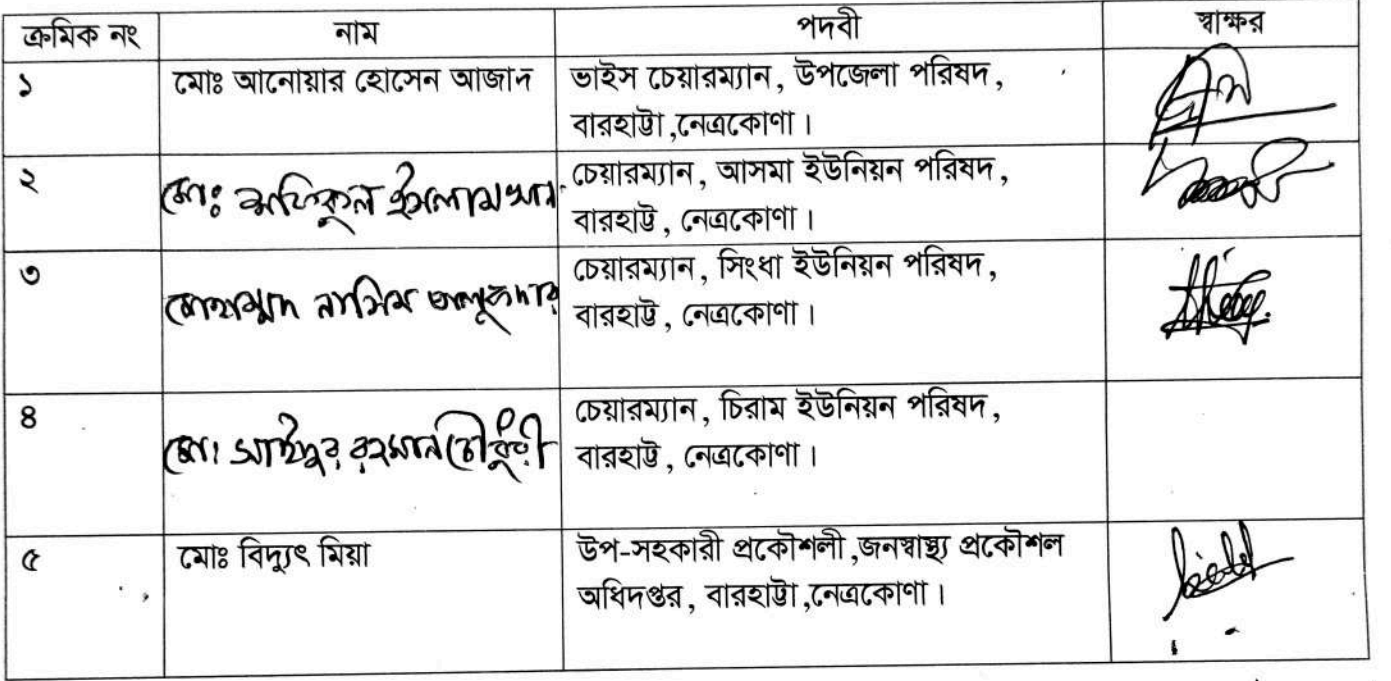 ক্রমিক নং নাম পদবী স্বাক্ষর
১ মোঃ আনোয়ার হোসেন আজাদ ভাইস চেয়ারম্যান, উপজেলা পরিষদ,
বারহাট্টা ,নেত্রকোণা।
২ মোঃ শফিকুল ইসলাম খান চেয়ারম্যান, আসমা ইউনিয়ন পরিষদ,
বারহাট্ট , নেত্রকোণা।
৩ মোহাম্মদ নাসিম তালুকদার চেয়ারম্যান, সিংধা ইউনিয়ন পরিষদ,
বারহাট্ট , নেত্রকোণা।
৪ মো: সাইদুর রহমান চৌধুরী চেয়ারম্যান, চিরাম ইউনিয়ন পরিষদ,
বারহাট্ট , নেত্রকোণা।
৫ মোঃ বিদ্যুৎ মিয়া উপ-সহকারী প্রকৌশলী ,জনস্বাস্থ্য প্রকৌশল
অধিদপ্তর, বারহাট্টা ,নেত্রকোণা।